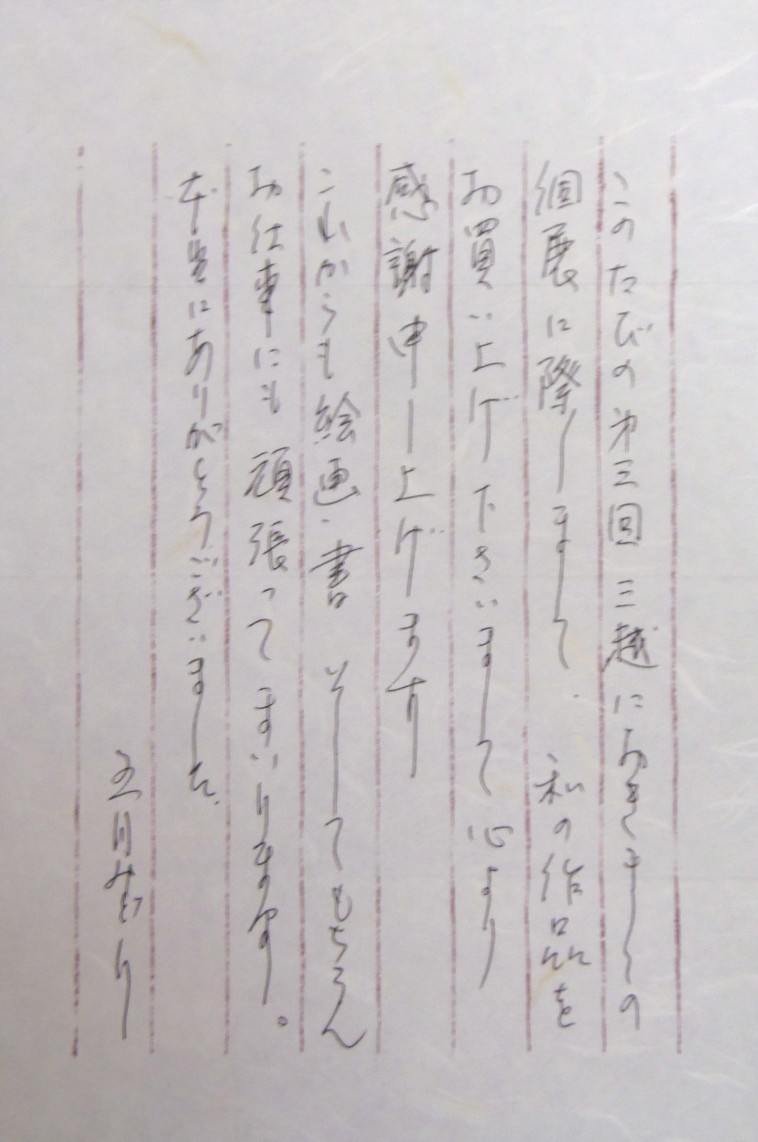 このたびの第三回 三越におきましての
個展に際しまして、私の作品を
お買い上げ下さいまして 心より
感謝申し上げます
これからも絵画・書 そしてもちろん
お仕事にも 頑張ってまいります。
本当にありがとうございました。
五月みどり